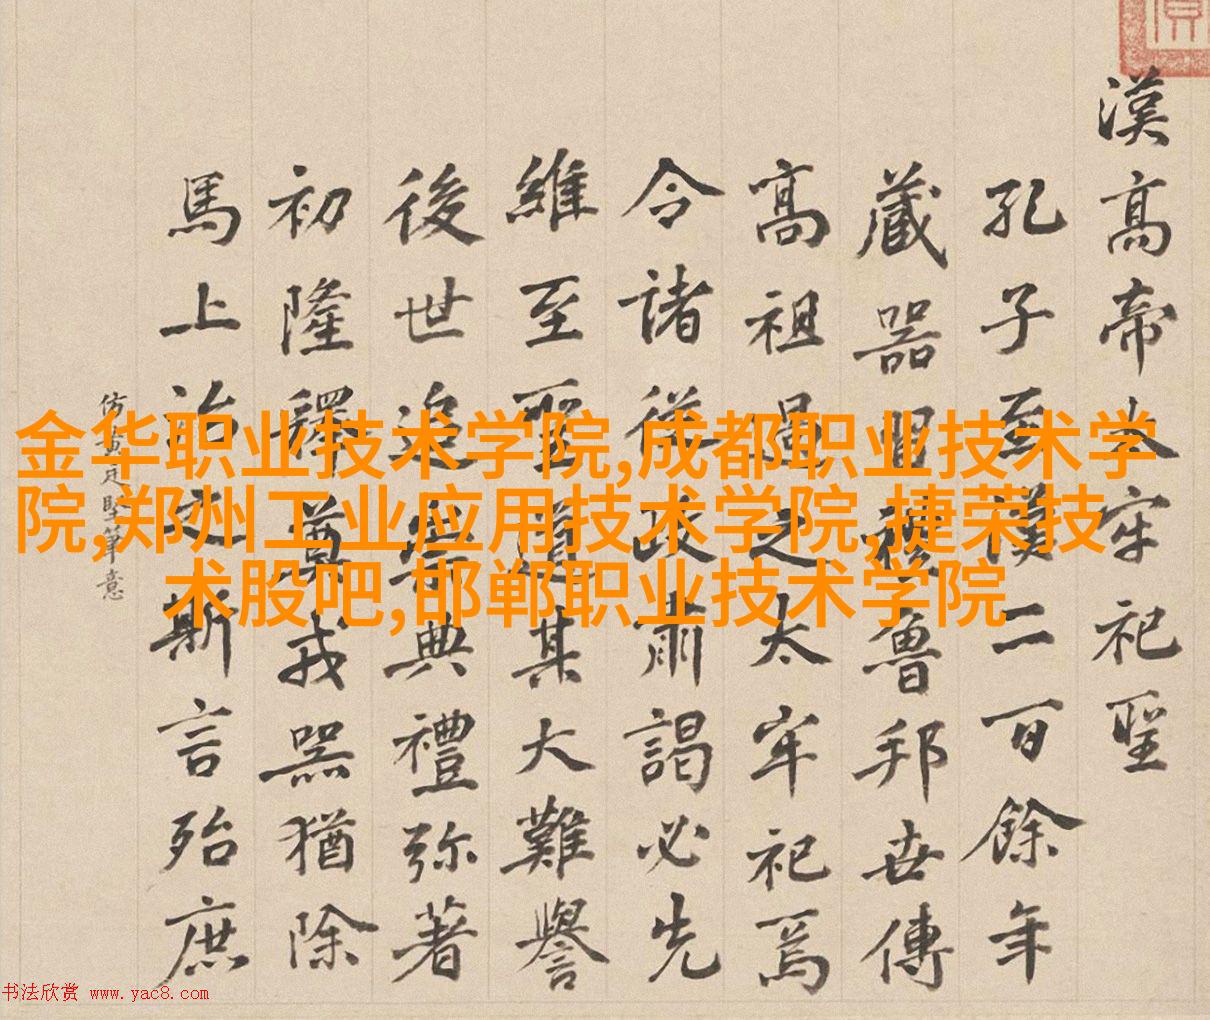 漢高帝太牢祀聖
孔子至漢二百餘年
藏器 魯邦世傳
高祖過之太牢祀焉
令諸從政肅謁必先
維至聖道其大難譽
後世追崇典禮弥著
初隆釋奠戎器猶除
馬上治之斯言殆庶
仿 堅筆意
金华职业技术学院,成都职业技术学
院,郑州工业应用技术学院,捷荣技
术股吧,邯郸职业技术学院
书法欣赏 www.yac8.com